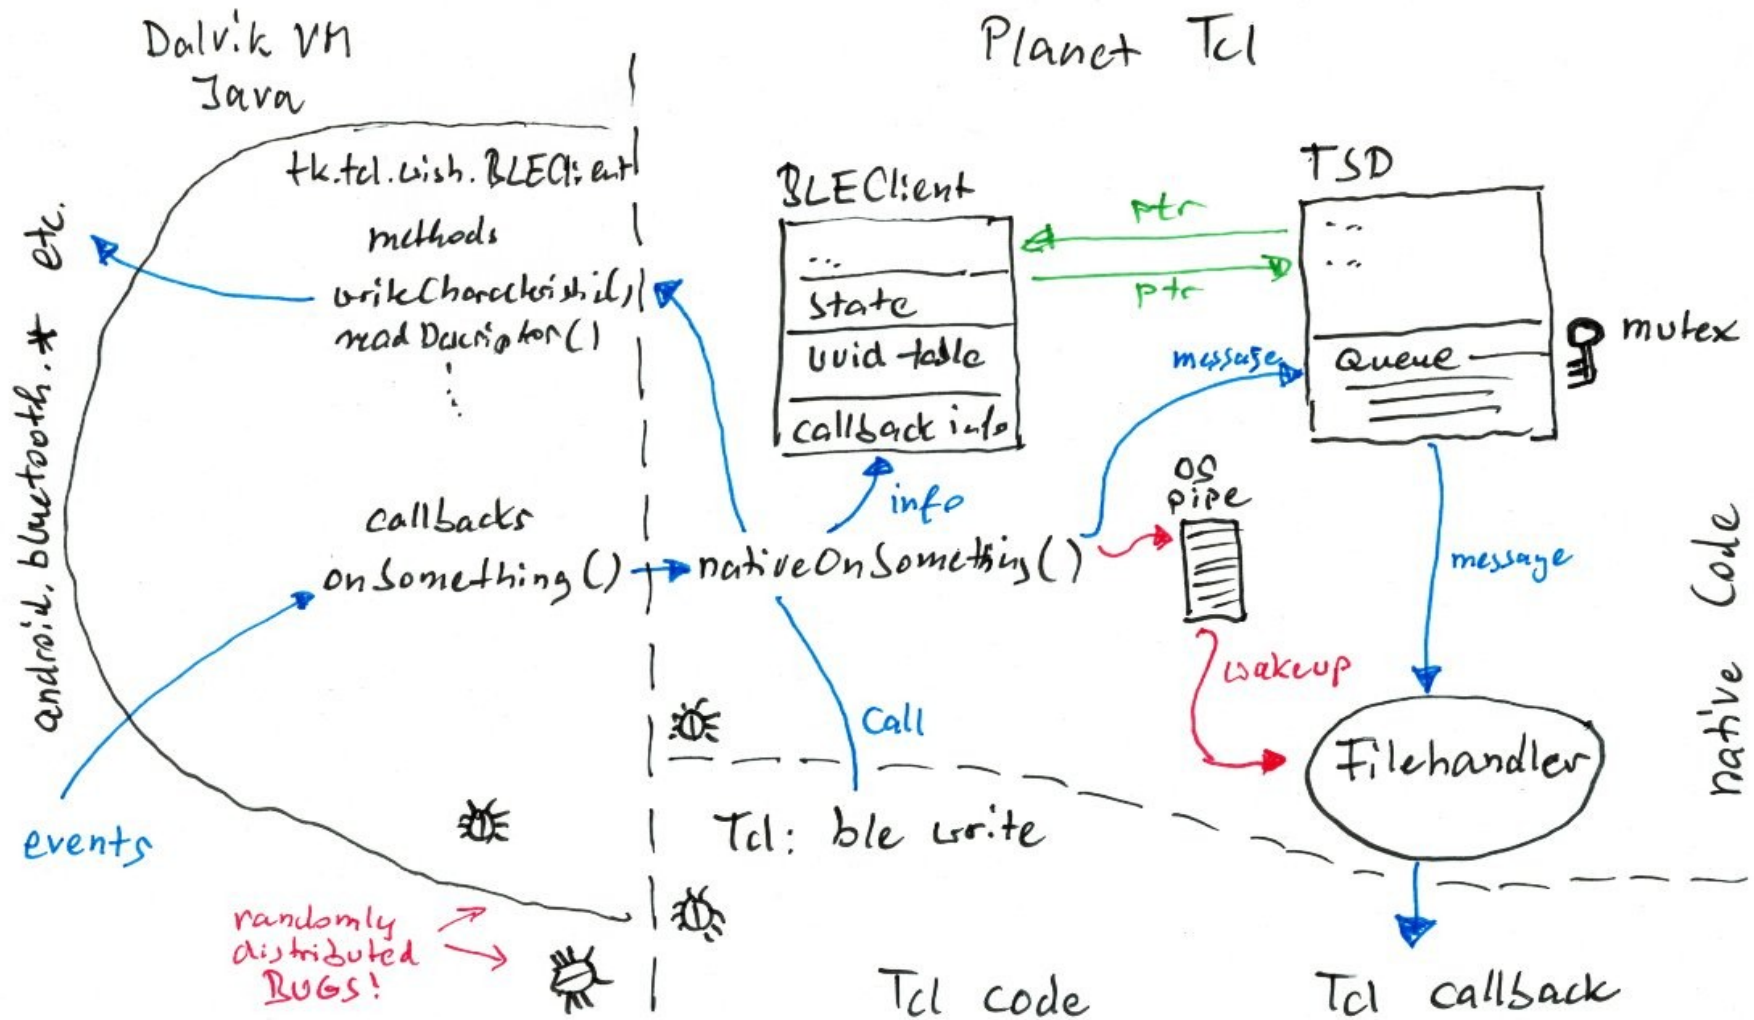 Dalvik VM
Java
Planet Tcl
tk.tcl.wish.BLEClient
methods
writeCharacteristic()
readDescriptor()
callbacks
onSomething()
android.bluetooth.* etc.
events
randomly
distributed
BUGS!
BLEClient
...
state
uuid table
callback info
ptr
ptr
TSD
Queue
mutex
message
info
nativeOnSomething()
OS
pipe
message
wakeup
Call
Filehandler
native Code
Tcl: ble write
Tcl code
Tcl callback